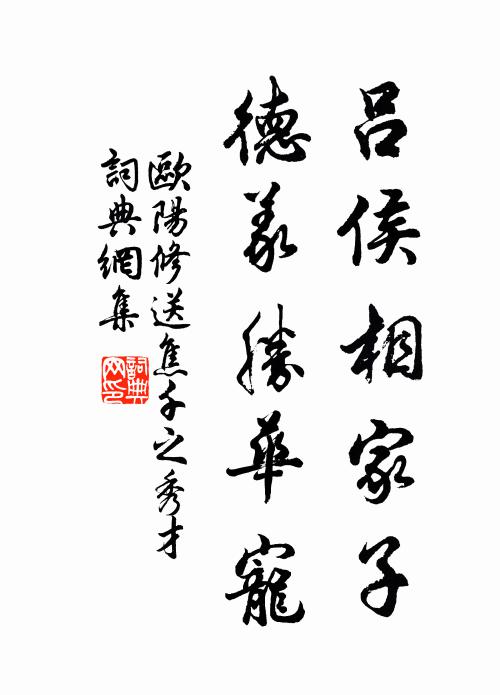 吕侯相家子
德義勝華寵
歐陽修送焦千之秀才
詞典網集
詞典
网印